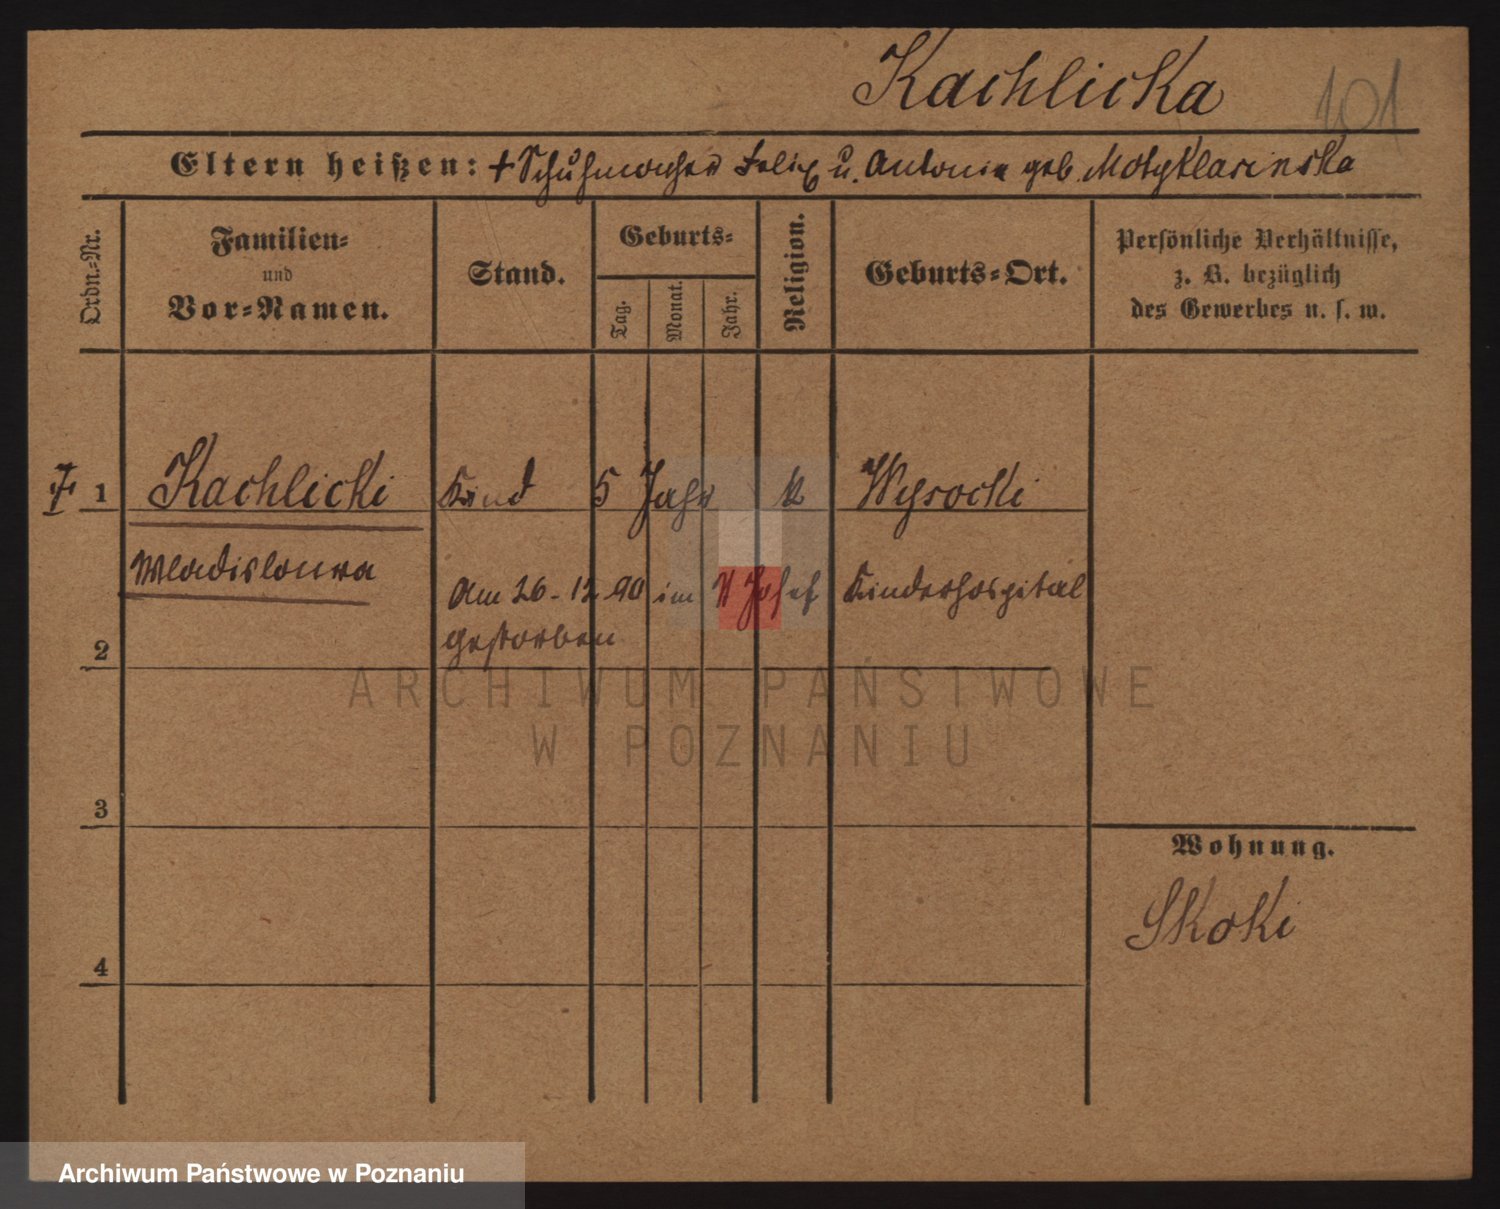 Kachlicka
101
Eltern heißen: + Schuhmacher Felix u. Antonie geb. Motyklasinska
Ordn.-Nr.
Familien-
und
Vor-Namen.
Stand.
Geburts-
Tag.
Monat.
Jahr.
Religion.
Geburts-Ort.
Persönliche Verhältnisse,
z. B. bezüglich
des Gewerbes u. s. w.
1 Kachlicki Kind 5 Jahr k Wysocki
Wladislawa
Am 26-12 90 im St Josef Kinderhospital
gestorben
2
ARCHIWUM PAŃSTWOWE
W POZNANIU
3
Wohnung.
Skoki
4
Archiwum Państwowe w Poznaniu